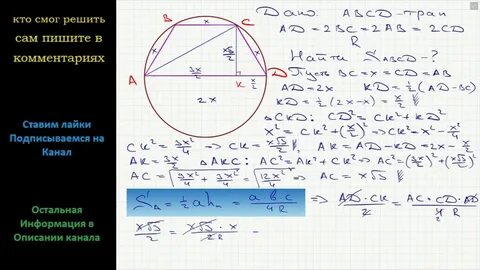 кто смог решить
сам пишите в
комментариях
Ставим лайки
Подписываемся на
Канал
Остальная
Информация в
Описании канала
A
B
C
D
K
x
x
x
x√3/2
3x/2
x/2
2x
Дано: ABCD-трап
AD = 2BC = 2AB = 2CD
R
Найти S_ABCD - ?
Пусть BC = x = CD = AB
AD = 2x KD = 1/2 (AD - BC)
KD = 1/2 (2x - x) = x/2
△CKD: CD² = CK² + KD²
x² = CK² + (x/2)² => CK² = x² - x²/4
CK² = 3x²/4 => CK = x√3/2 AK = AD - KD = 2x - x/2
AK = 3x/2 △AKC: AC² = AK² + CK² => AC² = (3x/2)² + (x√3/2)²
AC = √(9x²/4 + 3x²/4) = √(12x²/4) => AC = x√3
S△ = 1/2 a hₐ = a b c / 4R => AD · CK / 2 = AC · CD · AD / 4R
x√3/2 = x√3 · x / 2R =